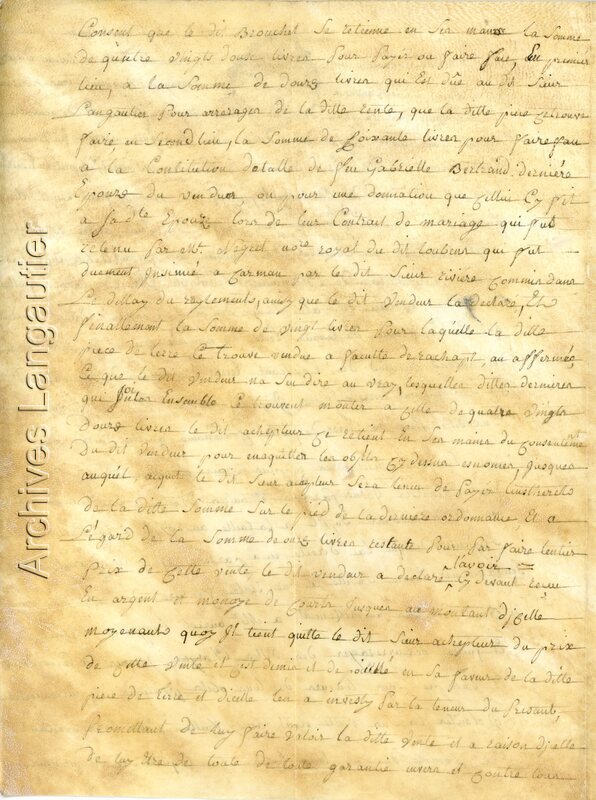 Consent que le dit Brouchet Se retienne en Ses mains la Somme
de quatre vingts douse livres Pour Payer ou faire fau, En premier
lieu, a la Somme de douze livres qui Est dûe au dit Sieur
Langautier Pour arrerages de la ditte rente, que la ditte piece
faire en Second lieu, la Somme de Soixante livres pour faire fau
a la Constitution dotalle de feu Gabrielle Bertrand derniere
Epouze du vendeur, ou pour une donnation que Cellui Cy fit
a sa dte Epouze lors de leur Contrait de mariage qui fut
retenu Par Mr Negret nore royal du dit loubens qui fut
duement Insinué a Carman par le dit Sieur riviere Commis dans
Le dellay du reglements, ainsy que le dit Vendeur la declare, Et
finallement la Somme de vingt livres Pour laquelle la ditte
piece de terre Ce trouve vendue a faculté de rachapt, ou affermée,
Ce que le dit Vendeur na Seu dire au vray, lesquelles dittes dernieres
qui Jointes Ensemble Ce trouvent monter a celle de quatre vingts
douze livres le dit achepteur Ce retient En Ses mains du Consentement
Du dit Vendeur pour enaquitter les objets Cy dessus esnomés, Jusques
auquel aquit le dit Sieur acepteur Sera tenu de Payer
de la ditte Somme Sur le pied de la derniere ordonnance Et a
L'égard de la Somme de livres restante Pour Par faire lentier
prix de Cette vente le dit vendeur a declaré lavoir Cy devant recue
En argent et monoye de Cours Jusques au montant d'icelle
moyenant quoy Il tient quitte le dit Sieur achepteur du prix
de Cette Vente et c'est demis et de en Sa faveur de la ditte
piece de terre et dicelle les a investy Par la teneur du Presant,
Promettant de luy faire Valoir la ditte Vente et a raison d'jcelle
de luy Etre de toute garantie envers et Contre tous